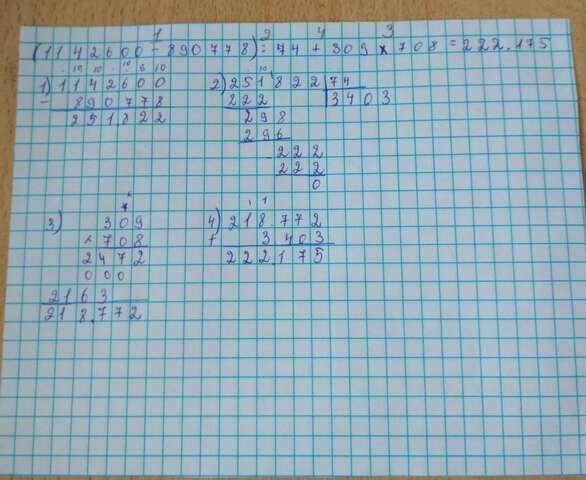 1 2 4 3
(1142600-890778):74+309×708=222.175
1) 1142600
- 890778
251822
2) 251822 74
222 3403
298
296
222
222
0
3) 309
×708
2472
000
2163
218.772
4) 218.772
+ 3.403
222.175